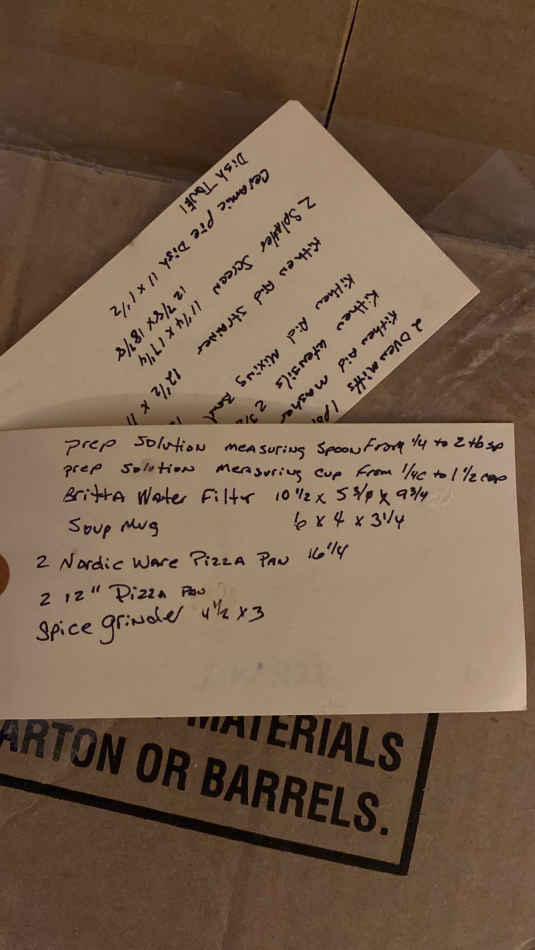 Dish Towel
Ceramic Pie Dish 11 x 1 1/2
2 Splatter Screen 11 1/4 x 17 1/4
Kitchen Aid Strainer
Kitchen Aid Mixing
Kitchen utensils
Kitchen Aid masher
2 Oven Mitts
prep Solution measuring Spoon From 1/4 to 2 tbsp
prep Solution measuring cup from 1/4c to 1 1/2 cup
Britta Water Filter 10 1/2 x 5 3/8 x 9 3/4
Soup Mug 6 x 4 x 3 1/4
2 Nordic Ware Pizza Pan 16 1/4
2 12" Pizza Pan
Spice grinder 4 1/2 x 3
MATERIALS
ARTON OR BARRELS.